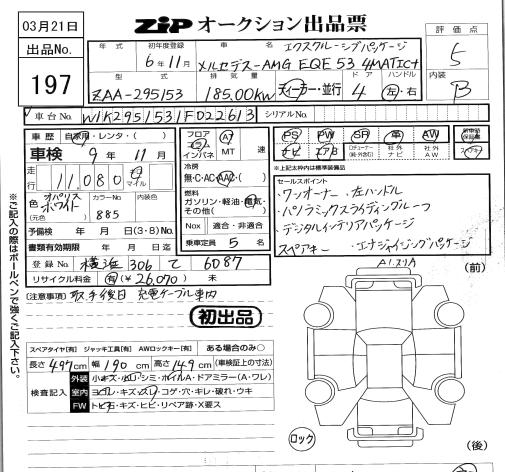 03月21日
ZiP オークション出品票
評価点
5
内装
B
出品No.
197
年式 初年度登録 車名
6年11月
エクスクルーシブパッケージ
メルセデス-AMG EQE 53 4MATIC+
型式 排気量 ドア ハンドル
ZAA-295153 185.00kw ディーラー・並行 4 左・右
車台No. W1K2951531F022613
シリアルNo.
車歴 自家用・レンタ・( )
車検 9年11月
走行 11,080 キロ マイル
色 オパリスホワイト
(元色)
カラーNo. 885
内装色
予備検 年 月 日(3・8) No.
書類有効期限 年 月 日迄
登録No. 横浜 306 て 6087
リサイクル料金 有(¥26,070) 未
フロア コラム インパネ AT MT 速
冷房
無・C・AC・AAC・( )
燃料
ガソリン・軽油・電気・その他( )
Nox 適合・非適合
乗車定員 5 名
PS PW SR 革 AW 新車時保証書
ナビ エアB 社外ナビ 社外AW
*上記太枠内は標準装備品
セールスポイント
・ワンオーナー ・左ハンドル
・パノラミックスライディングルーフ
・デジタルインテリアパッケージ
スペアキー ・エナジャイジングパッケージ
(注意事項) 取手後日 充電ケーブル車内
初出品
スペアタイヤ[有] ジャッキ工具[有] AWロックキー[有] ある場合のみ○
長さ497cm 幅190cm 高さ149cm (車検証上の寸法)
検査記入
外装 小キズ・凹・シミ・ホイルA・ドアミラー(A・ワレ)
室内 ヨゴレ・キズ・スリ・コゲ・穴・キレ・破れ・ウキ
FW トビ石・キズ・ヒビ・リペア跡・X要ス
※ご記入の際はボールペンで強くご記入下さい。
(前)
ロック
(後)